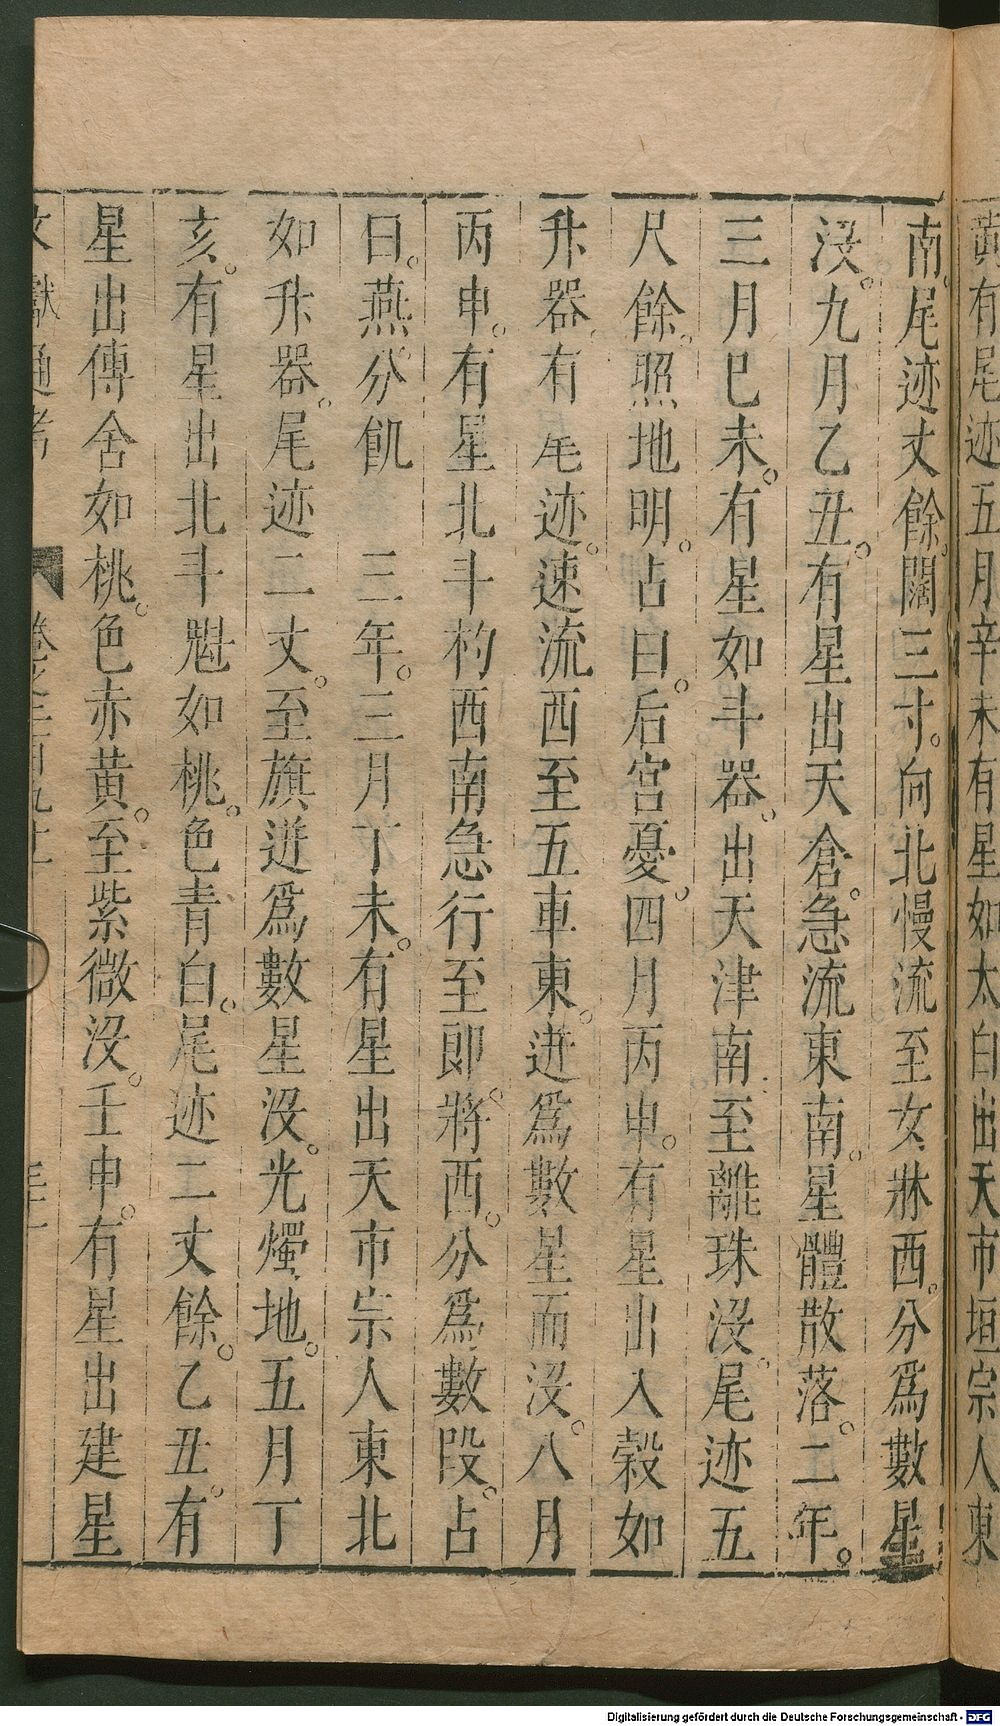 黃有尾迹五月辛未有星如太白出天市垣宗人東
南。尾迹丈餘。闊三寸。向北慢流至女牀西。分爲數星
沒。九月乙丑。有星出天倉。急流東南。星體散落。二年。
三月巳未。有星如斗器。出天津南至離珠沒。尾迹五
尺餘。照地明。占曰。后宮憂。四月丙申。有星出入穀如
升器。有尾迹。速流西至五車東。迸爲數星而沒。八月
丙申。有星北斗杓西南急行至郎將西。分爲數段。占
曰。燕分飢　三年。三月丁未。有星出天市宗人東北
如升器。尾迹二丈。至旗迸爲數星沒。光燭地。五月丁
亥。有星出北斗魁如桃。色青白。尾迹二丈餘。乙丑。有
星出傳舍如桃。色赤黃。至紫微沒。壬申。有星出建星
文獻通考　卷之二百九十一
Digitalisierung gefördert durch die Deutsche Forschungsgemeinschaft - DFG